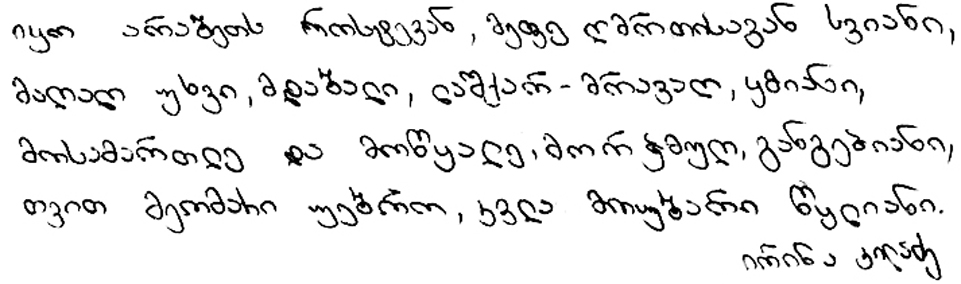 იყო არაბეთს როსტევან, მეფე ღმრთისაგან სვიანი,
მაღალი უხვი, მდაბალი, ლაშქარ-მრავალი, ყმიანი,
მოსამართლე და მოწყალე, მორჭმული, განგებიანი,
თვით მეომარი უებრო, კვლა მოუბარი წყლიანი.
ირინა